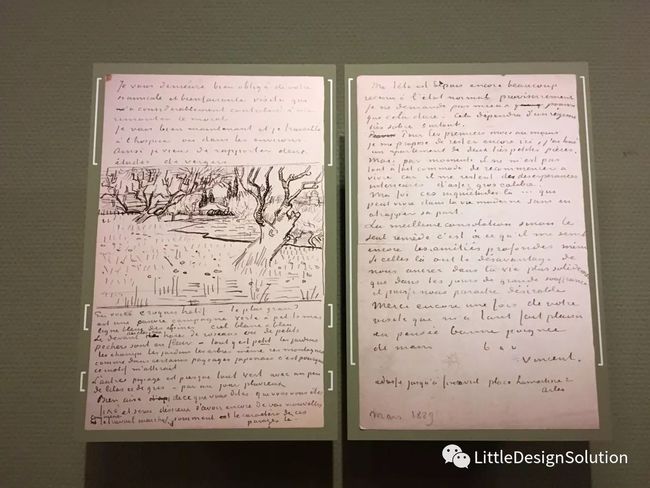 Je vous demeure bien obligé de votre
si amicale et bienfaisante visite qui
m'a considérablement contribué à me
remonter le moral
Je vais bien maintenant et je travaille
à l'hospice ou dans les environs.
Ainsi je viens de rapporter deux
études de vergers
En voici croquis hatif - le plus grand
est une pauvre campagne verte à petits mas
ligne bleue des alpines ciel blanc & bleu
Le devant de roseaux où de petits
pechers sont en fleur - tout y est petit les jardins
les champs les jardins les arbres même ces montagnes
comme dans certains paysages japonais c'est pourquoi
ce motif m'attirait
L'autre paysage est presque tout vert avec un peu
de lilas et de gris - par un jour pluvieux
Bien aise de ce que vous dites que vous vous êtes
fixé et serai désireux d'avoir encore de vos nouvelles
comment le travail marche comment est le caractère de ces
parages là -
Ma tête est depuis encore beaucoup
revenue à l'état normal provisoirement
je ne demande pas mieux pourvu
que cela dure. Cela dépendra d'un régime
très sobre surtout.
Pour les premiers mois au moins
je me propose de rester encore ici, j'ai loué
un appartement de deux très petites pièces.
Mais par moments il ne m'est pas
tout à fait commode de recommencer à
vivre car il me reste des désespérances
intérieures d'assez gros calibre.
Ma foi ces inquiétudes là .. qui
peut vivre dans la vie moderne sans en
attrapper sa part.
La meilleure consolation sinon le
seul remède c'est à ce qu'il me semble
encore les amitiés profondes même
si celles là ont le désavantage de
nous ancrer dans la vie plus solidement
que dans les jours de grande souffrance
il puisse nous paraitre désirable
Merci encore une fois de votre
visite qui m'a tant fait plaisir
en pensée bonne poignée
de main b. à v.
Vincent.
adresse jusqu'à place Lamartine 2
Arles
Mars 1889
LittleDesignSolution